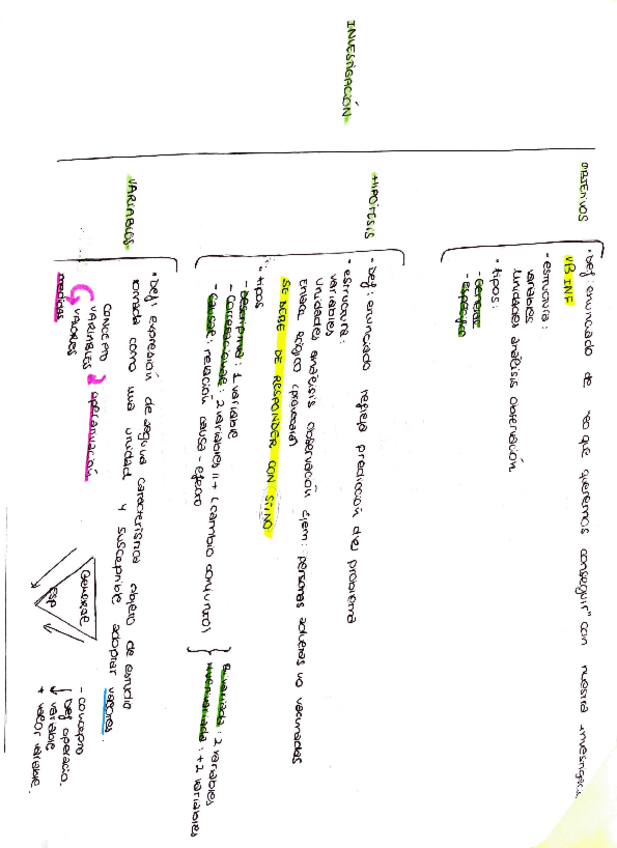 INVESTIGACIÓN
OBJETIVOS
• Def: enunciado de "lo que queremos conseguir" con nuestra investigació.
VB INF
• estructura:
variables
unidades análisis observación
• tipos:
- General
- Específico
HIPÓTESIS
• Def: enunciado refleja predicción del problema
• estructura:
variables
Unidades análisis observación Ejem: personas adultas no vacunadas
Enlace lógico (provocará)
SE DEBE DE RESPONDER CON SI/NO
• tipos
- Descriptiva: 1 variable
- Correlacional: 2 variables (cambio conjunto)
- Causal: relación causa-efecto
Bivariada: 2 variables
Multivariada: +2 variables
VARIABLES
• Def: expresión de alguna característica objeto de estudio
tomada como una unidad y susceptible adoptar valores.
CONCEPTO
VARIABLES operativación
VALORES
medidas
GENERAL
ESP
- concepto
↓ Def operacio.
↓ variable
+ valor variable.